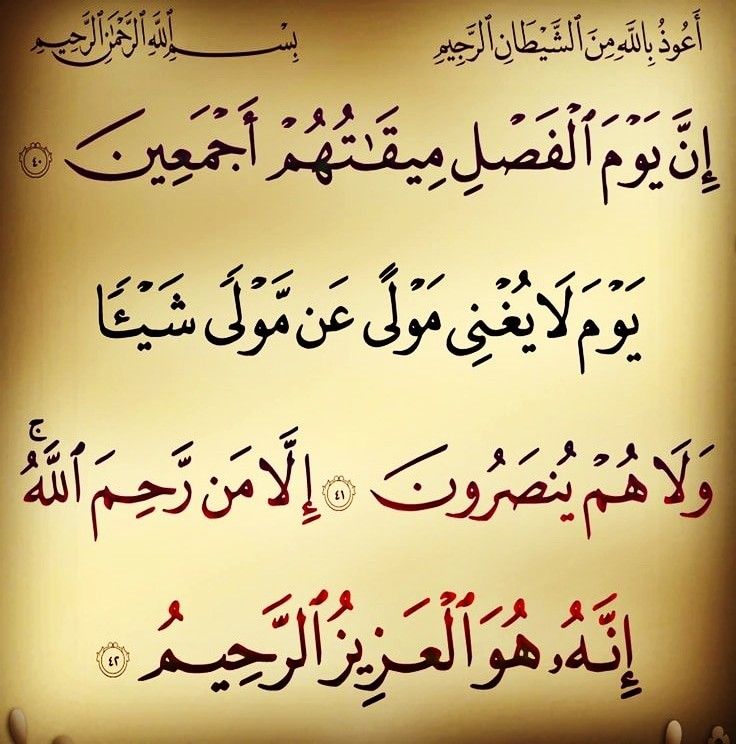 أَعُوذُ بِاللَّهِ مِنَ ٱلشَّيْطَانِ ٱلرَّجِيمِ بِسْمِ ٱللَّهِ ٱلرَّحْمَٰنِ ٱلرَّحِيمِ
إِنَّ يَوْمَ ٱلْفَصْلِ مِيقَـٰتُهُمْ أَجْمَعِينَ ٤٠
يَوْمَ لَا يُغْنِى مَوْلًى عَن مَّوْلًى شَيْـًٔا
وَلَا هُمْ يُنصَرُونَ ٤١ إِلَّا مَن رَّحِمَ ٱللَّهُ ۚ
إِنَّهُۥ هُوَ ٱلْعَزِيزُ ٱلرَّحِيمُ ٤٢